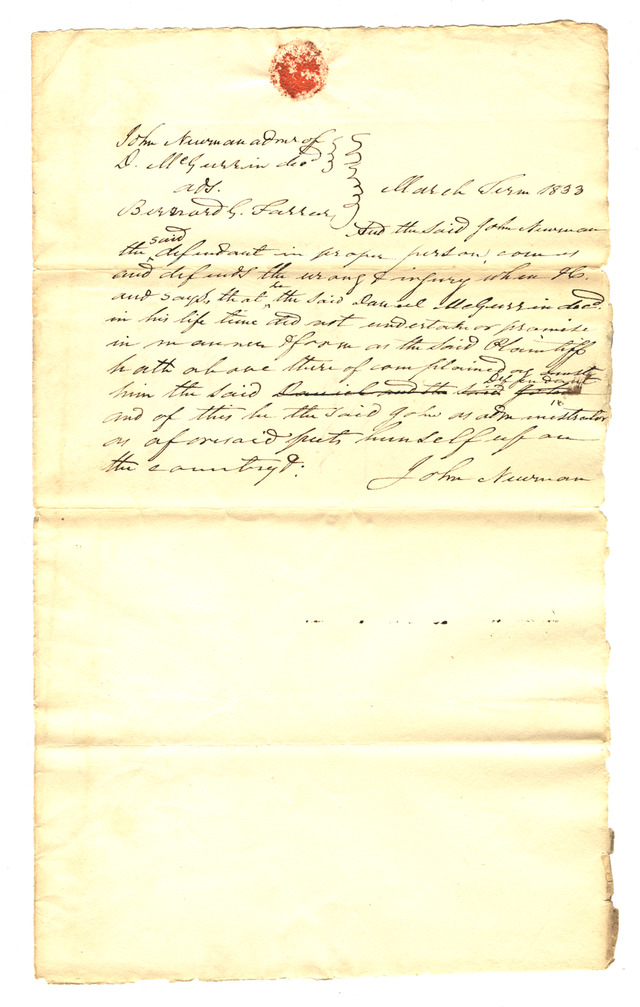 John Newman admr of
D. McGurrin decd
ads.
Bernard G. Farrar
March Term 1833
And the said John Newman
the said defendant in proper person, comes
and defends the wrong & injury when &c.
and says, that he the said Daniel McGurrin decd.
in his life time did not undertake or promise
in manner & form as the said Plaintiff
hath above thereof complained against
him the said Daniel and the said John Defendant
and of this he the said John as administrator
as aforesaid puts himself upon
the country &:
John Newman